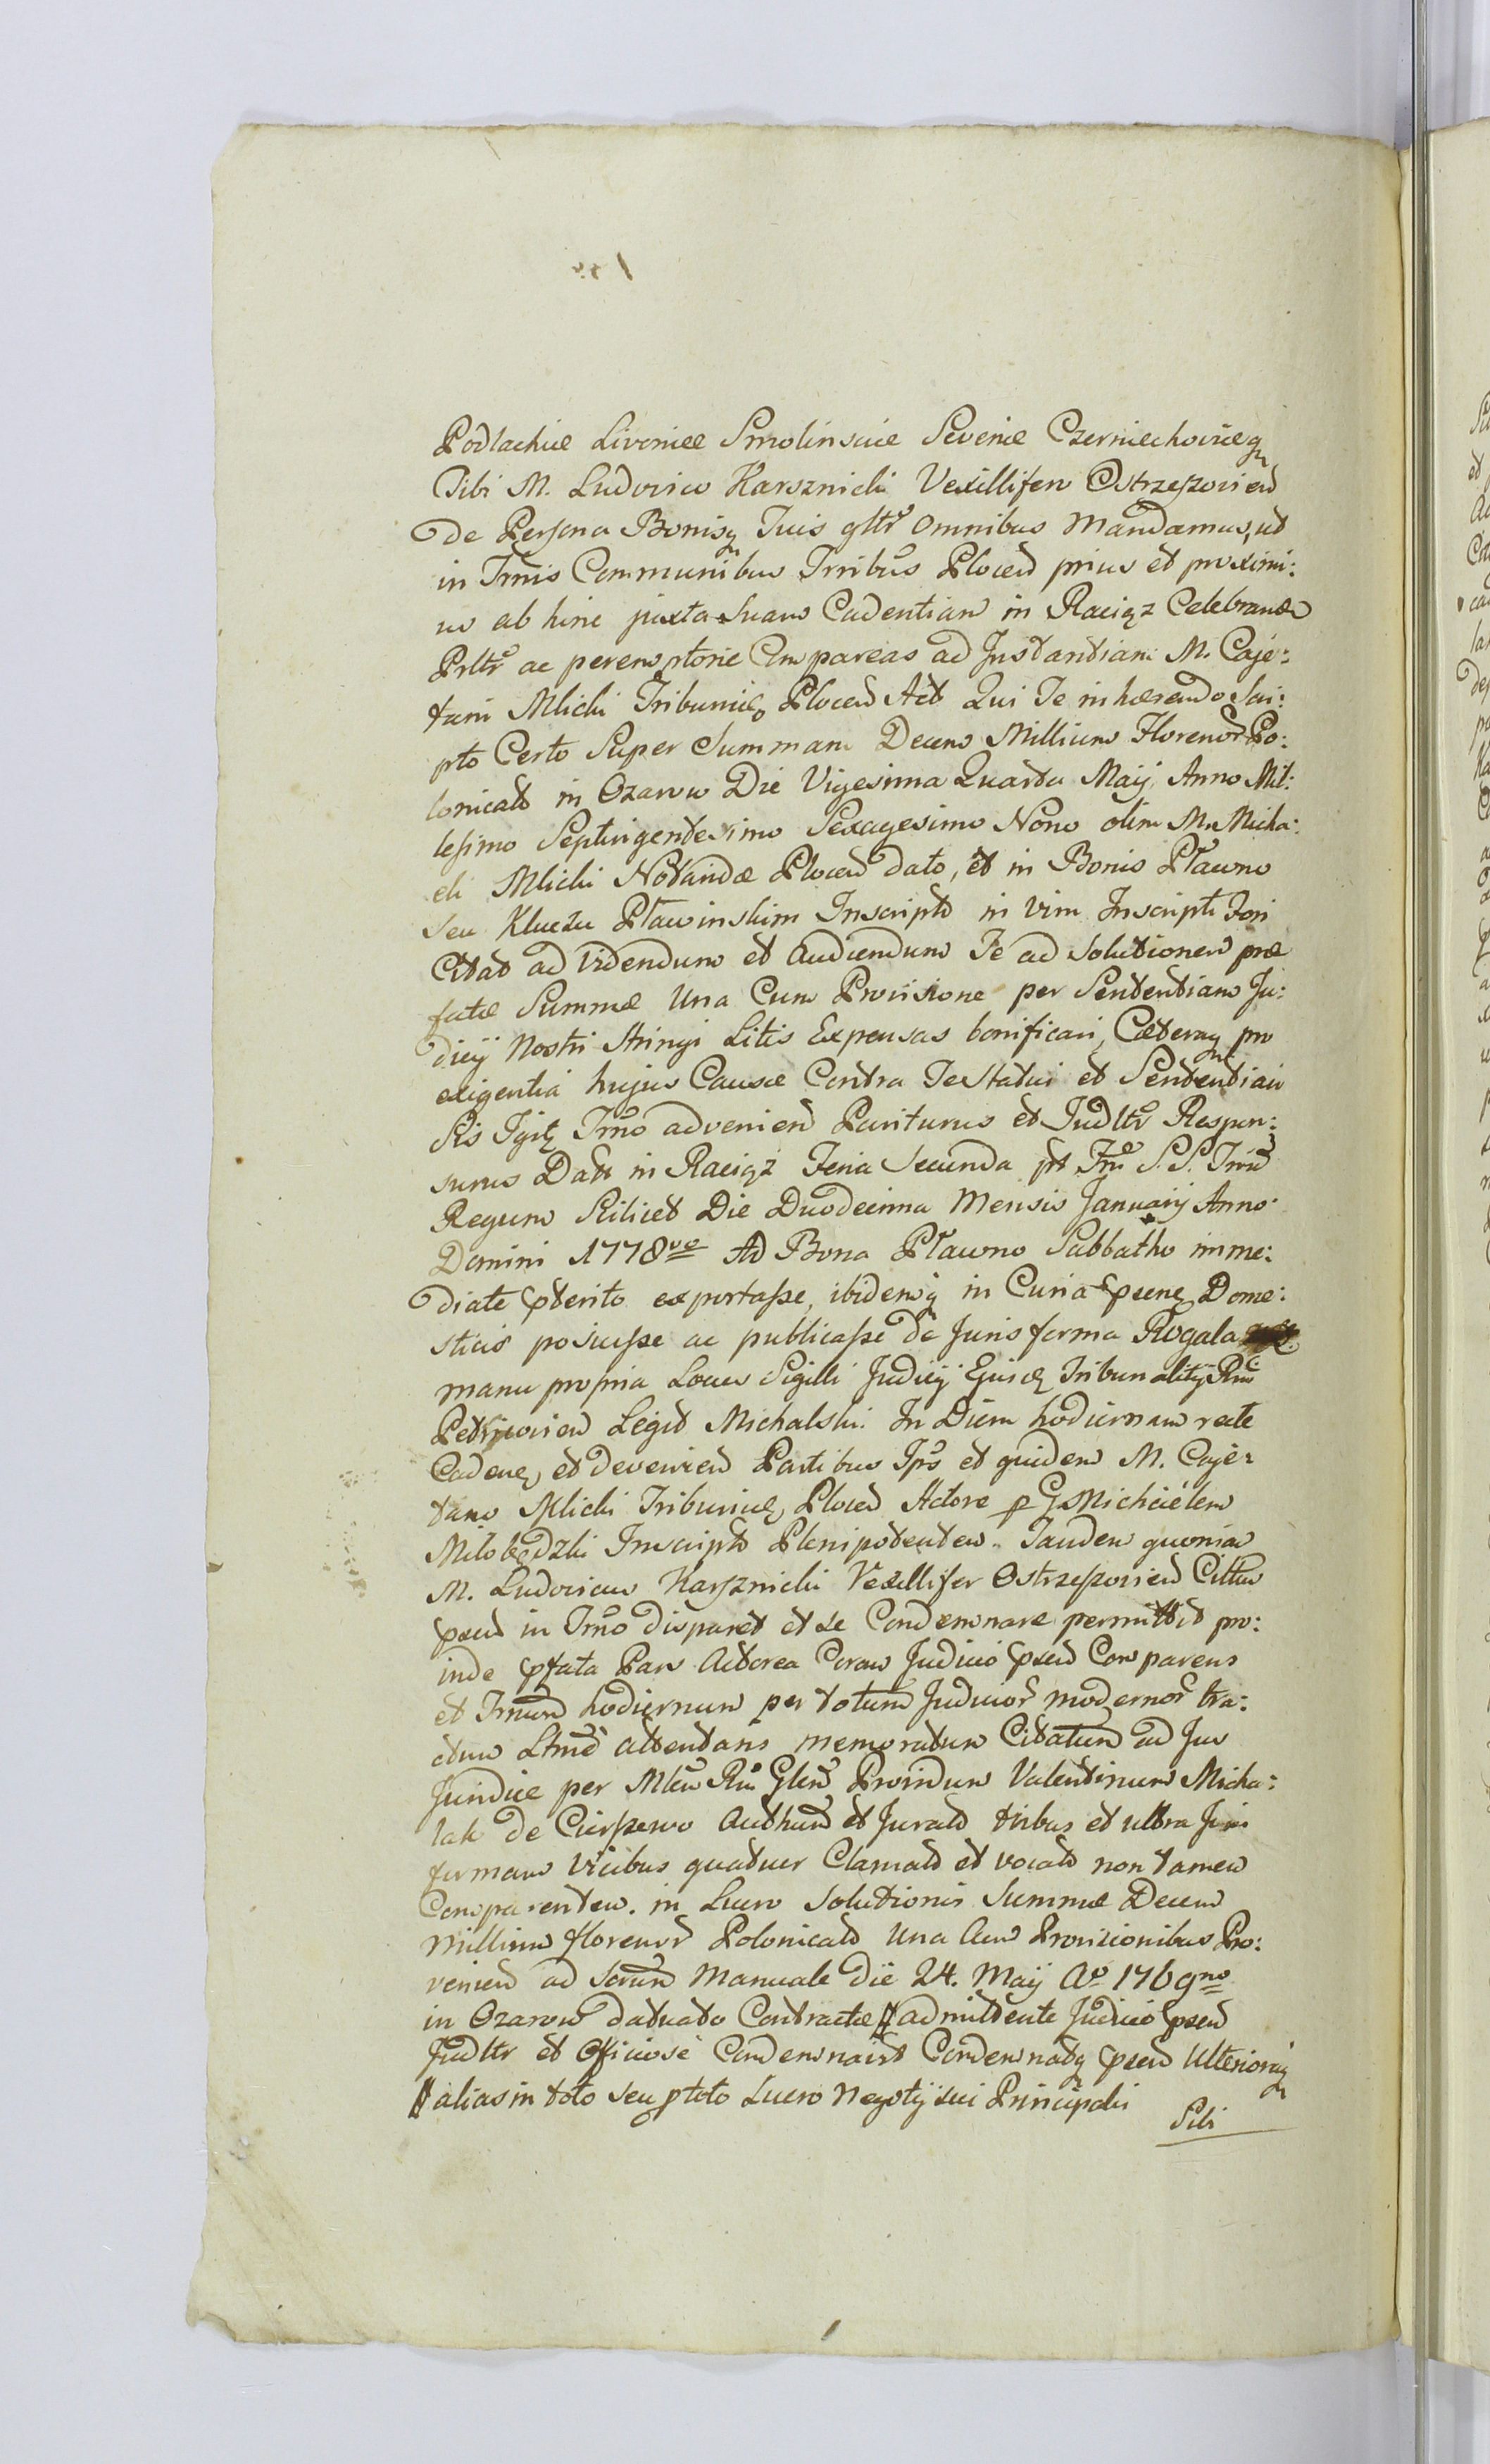 Podlachiæ Livoniæ Smolinsciæ Seveniæ Czerniechoviæq
Tibi M. Ludovico Karsznicki Vexillifero Ostrzeszovien
de Persona Bonisq Tuis gltr omnibus Mandamus, ut
in Trnis Communibus Trribus Plocen prius et proximi:
us ab hinc juxta Suam Cadentiam in Raciąz Celebrand
Prltr ac peremptorie Compareas ad Instantiam M. Caje:
tani Mlicki Tribunidę Plocen Act Qui Te inhærendo Scri:
pto Certo Super Summam Decem Millium Florenor Po:
lonicaol in Ozarow Die Vigesima Quarta Maij Anno Mil:
lesimo Septingentesimo Sexagesimo Nono olim M. Micha:
eli Mlicki Notaridæ Plocen dato, et in Bonis Pławno
seu Kluczu Pławinskim Inscripto in vim Inscripti Fori
Citat ad Videndum et Audiendum Te ad Solutionem præ
fatæ Summæ Una Cum Provisione per Sententiam Ju:
dicij Nostri Stringi Litis Expensas bonificari, Cæteraq pro
exigentia hujus Causæ Contra Te Statui et Sententiari
Sis Igitr Trno advenien Pariturus et Judltr Respon:
surus Datt in Raciąz Feria Secunda pt Ftu S.S. Trium
Regum Scilicet Die Duodecima Mensis Januarij Anno
Domini 1778vo Ad Bona Pławno Sabbatho imme:
diate pterito exportasse, ibidemq in Curia psene Dome:
sticis posuisse ac publicasse de Juris forma Rogala
manu propria Locus Sigilli Judicij Ejusd Tribunalitij Rni
Petricovien Legit Michalski. In Diem hodiernam recte
Caden, et devenien Partibus Ips et quidem M. Caje:
tano Mlicki Tribunidę Plocen Actore p G. Michaëlem
Miłobędzki Inscript Plenipotentem. Tandem quoniam
M. Ludovicus Karsznicki Vexillifer Ostrzeszovien Cittus
psens in Trno disparet et se Condemnare permittit pro:
inde pfata Pars Actorea Coram Judicio psen Comparens
et Trnum hodiernum per totum Judicior modernor tra:
ctum Ltme attentans memoratum Citatum ad Jus
Juridice per Mlem Rni Glem Providum Valentinum Micha:
lak de Cierszewo Authum et Jurato tribus et ultra Juris
formam Vicibus quatuor Clamato et vocato non tamen
Comparentem. in Lucro Solutionis Summæ Decem
Millium florenor Polonicaol Una Cum Provizionibus Pro:
venien ad Scrum Manuale die 24. Maij Ao 1769no
in Ozarow datuato Contractæ # admittente Judicio psen
Judltr et Officiose Condemnavit Condemnatq psen Ulterioraq
# alias in toto seu p toto Lucro Negotij sui Principalis
Sibi